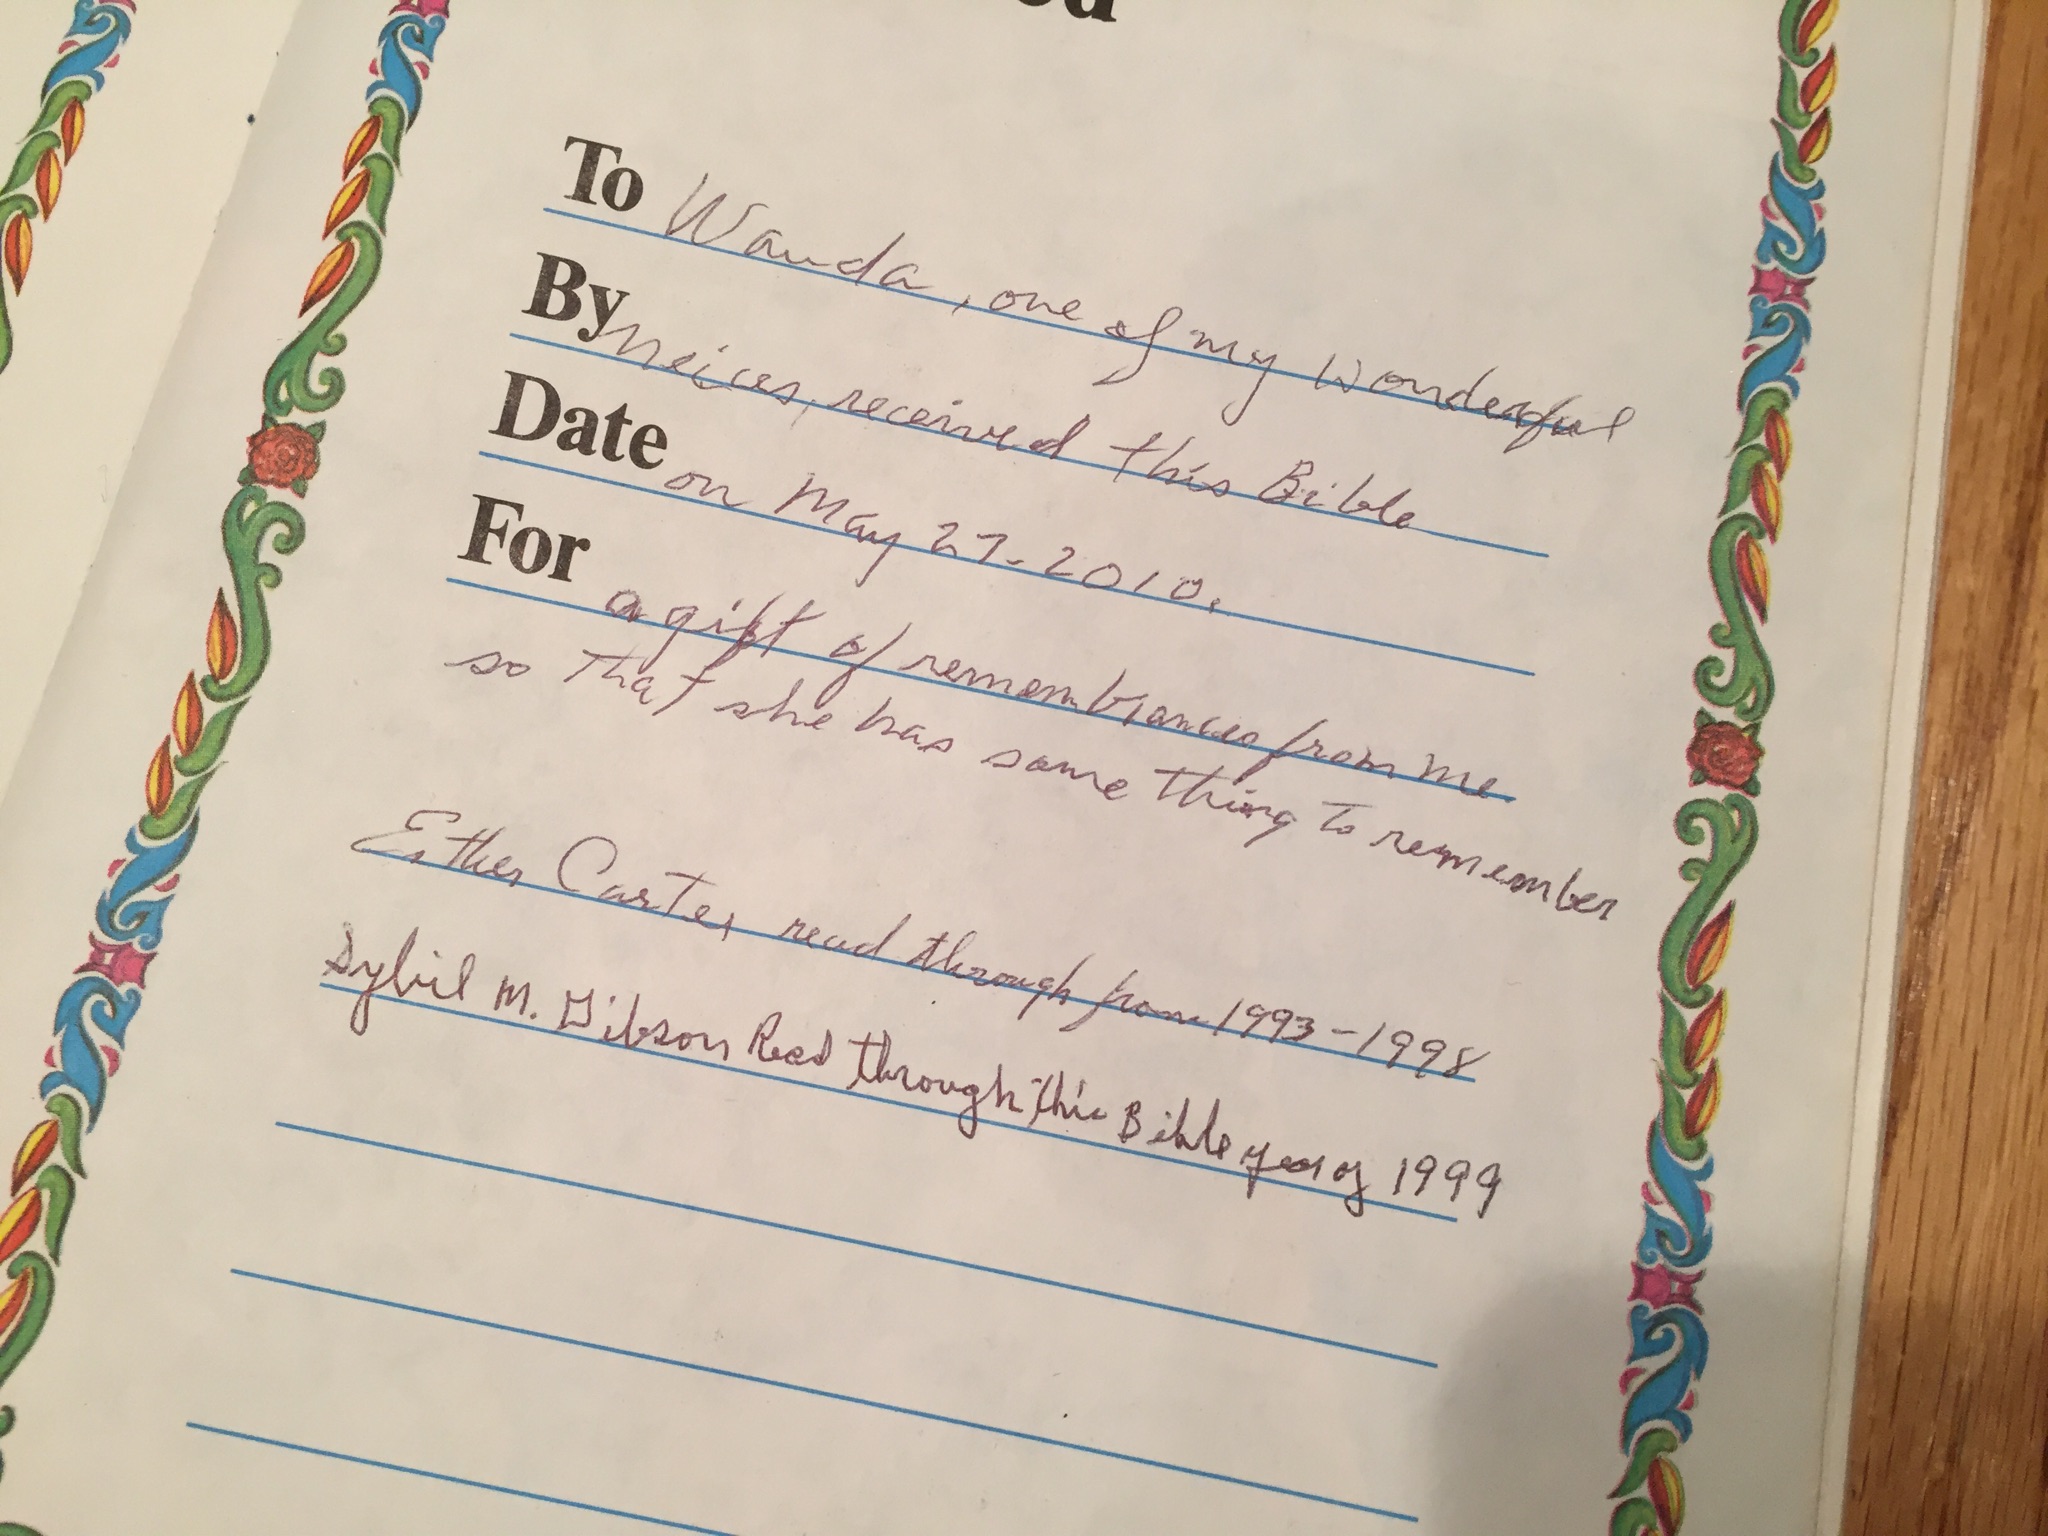 To Wanda, one of my wonderful
By neices, received this Bible
Date on May 27-2010.
For a gift of remembrances from me
so that she has some thing to remember
Esther Carter read through from 1993-1998
Sybil M. Gibson Read through this Bible year of 1999